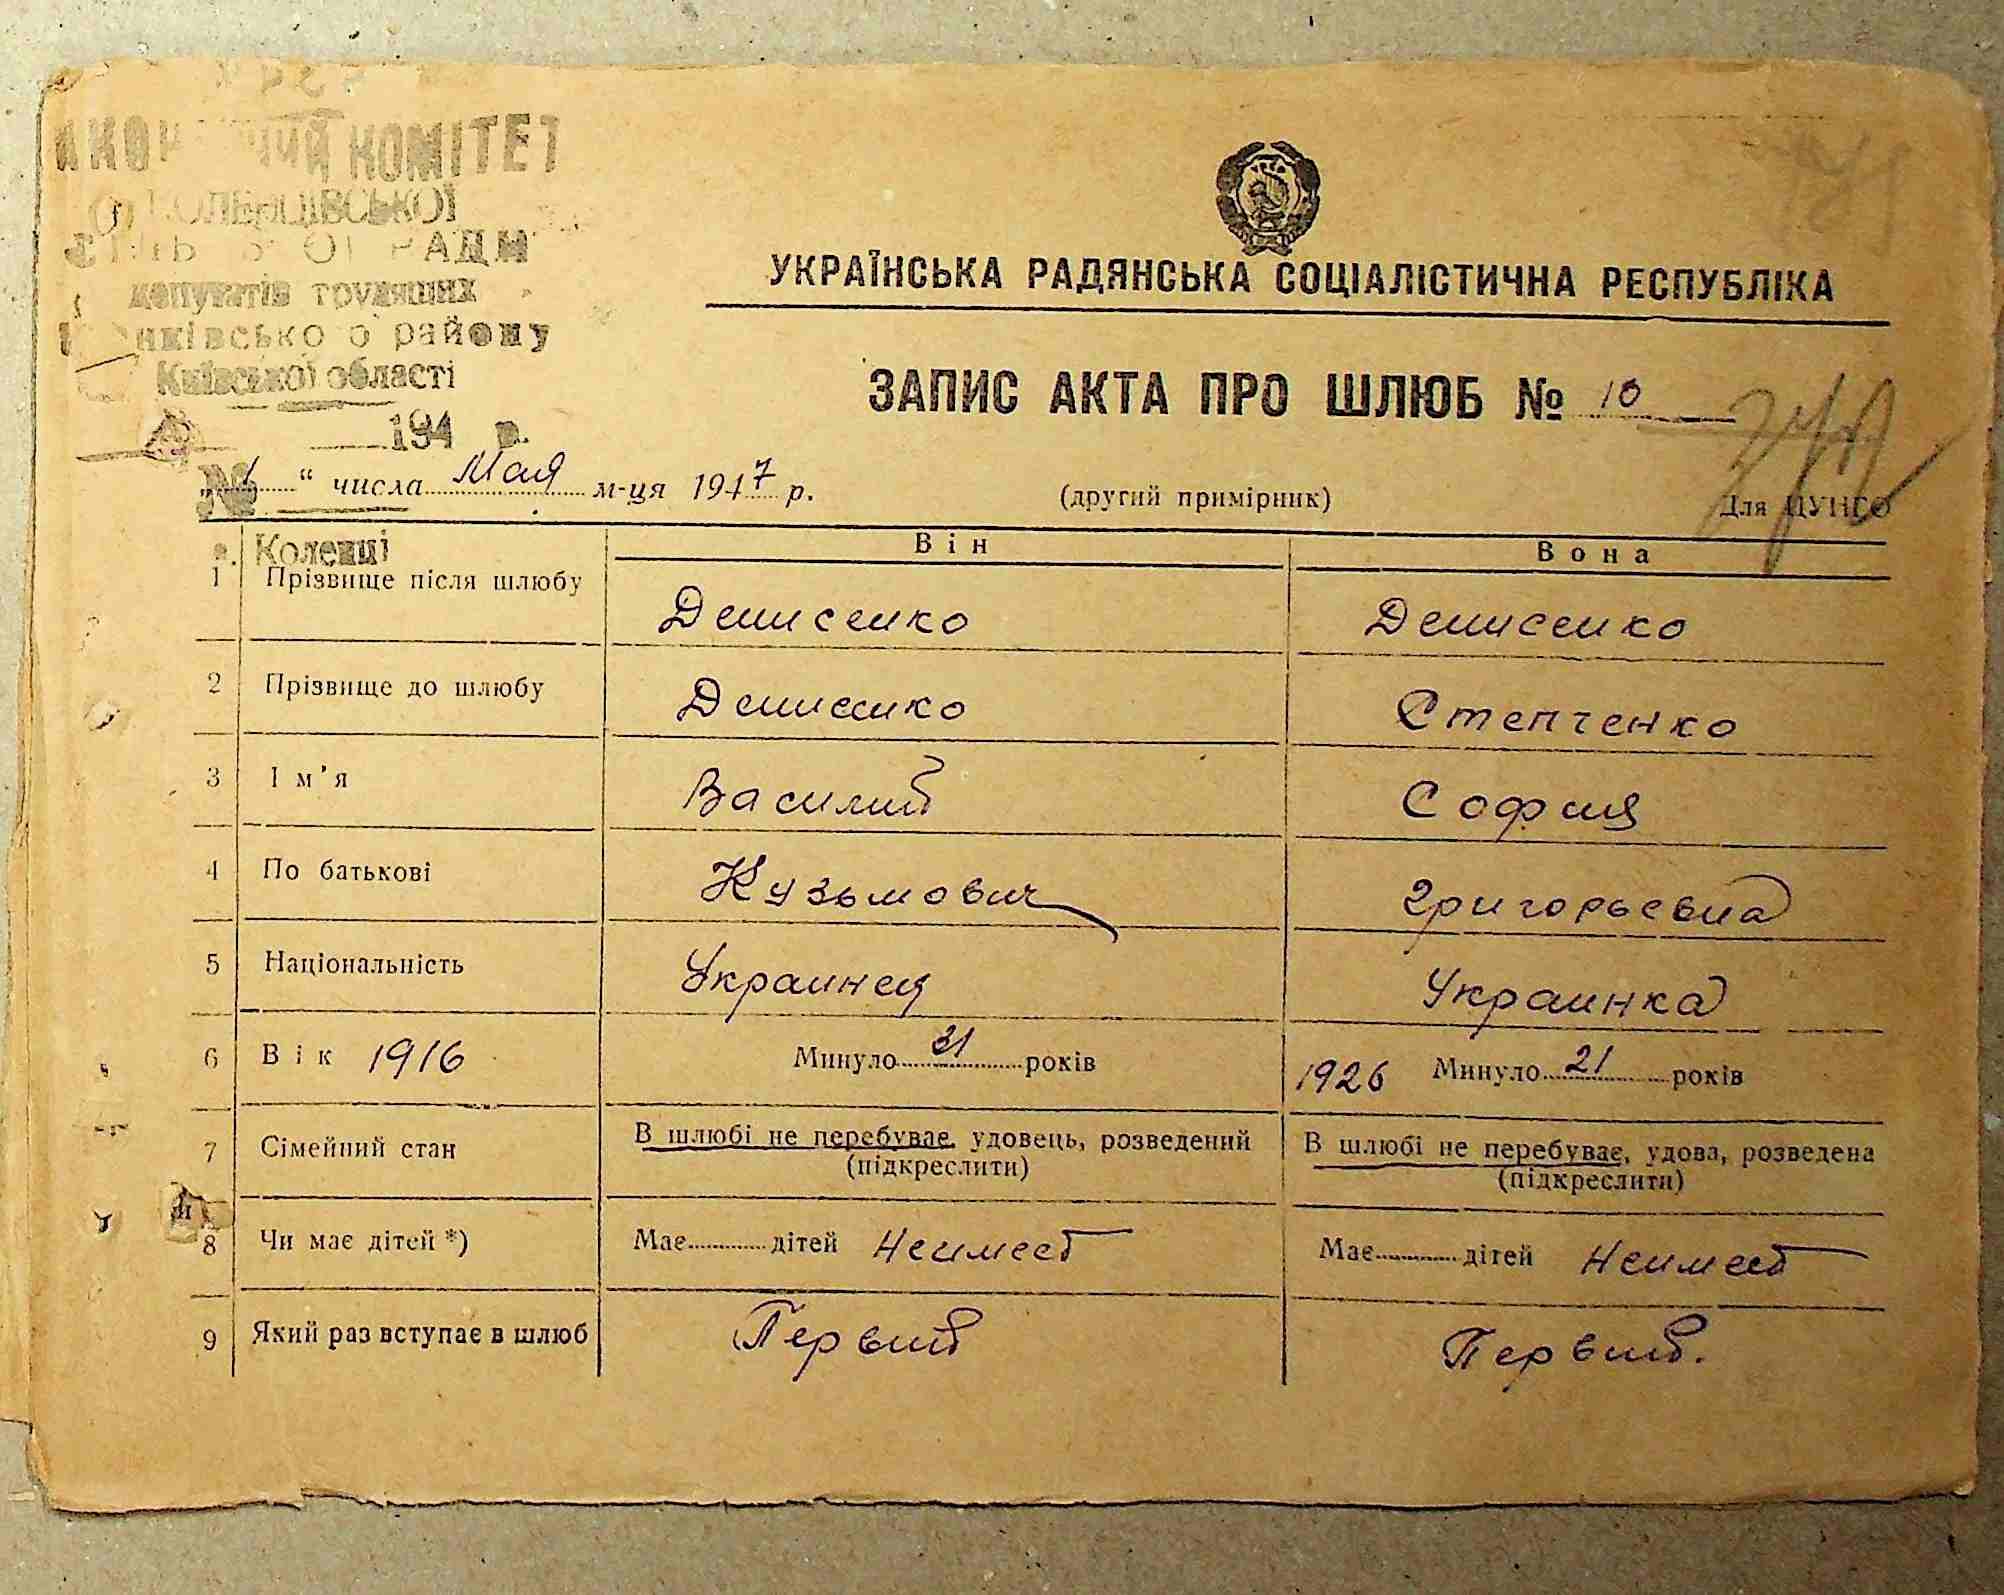 КОМІТЕТ
депутатів трудящих
району
Київської області
194 р.
УКРАЇНСЬКА РАДЯНСЬКА СОЦІАЛІСТИЧНА РЕСПУБЛІКА
ЗАПИС АКТА ПРО ШЛЮБ № 10
№ 1 “ числа Мая м-ця 1947 р. (другий примірник) Для ЦУНГО
с. Коленці Він Вона
1 Прізвище після шлюбу Денисенко Денисенко
2 Прізвище до шлюбу Денисенко Степченко
3 Ім'я Василий София
4 По батькові Кузьмович Григорьевна
5 Національність Украинец Украинка
6 Вік 1916 Минуло 31 років 1926 Минуло 21 років
7 Сімейний стан В шлюбі не перебуває, удовець, розведений В шлюбі не перебуває, удова, розведена
(підкреслити) (підкреслити)
8 Чи має дітей *) Має дітей Неимеет Має дітей Неимеет
9 Який раз вступає в шлюб Первий Первий.